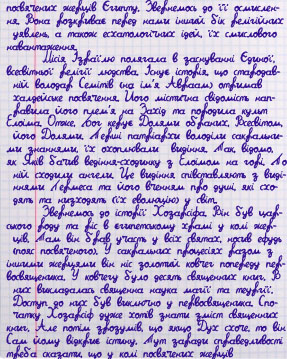 посвячених жерців Єгипту. Звернемось до її осмислен-
ня. Вона розкриває перед нами інший бік релігійних
уявлень, а також есхатологічних ідей, їх смислового
навантаження.
Місія Ізраїлю полягала в заснуванні Єдиної,
всесвітньої релігії людства. Існує історія, що стародав-
ній володар Семітів (на ім'я Абрам) отримав
халдейське посвячення. Його містична свідомість нап-
равила його плем'я на Захід та породила культ
Елоїма. Отже, Бог керує Долями обраних, Всесвітом,
його Долями. Перші патріархи володіли сакральни-
ми знаннями, їх охоплювали видіння. Так, відомо,
як Яків бачив видіння-сходинку з Елоїмом на горі. По
ній сходили ангели. Це видіння співставляють з виді-
ннями Гермеса та його вченням про душі, які схо-
дять та низходять (їх еволюцію) у світ.
Звернемось до історії Хозарсіфа. Він був цар-
ського роду та ріс в єгипетському храмі у колі жер-
ців. Там він брав участь у всіх святах, носив ефудь
(пояс посвячення). У сакральних процесіях разом з
іншими жерцями він ніс золотий ковчег попереду пер-
восвященика. У ковчегу було десять священних книг. В
них викладалась священна наука магії та теургії.
Доступ до них був виключно у первосвященика. Спо-
чатку Хозарсіф дуже хотів знати зміст священних
книг. Але потім зрозумів, що якщо Дух схоче, то він
Сам йому відкриє істину. Тут заради справедливості
треба сказати, що у колі посвячених жерців